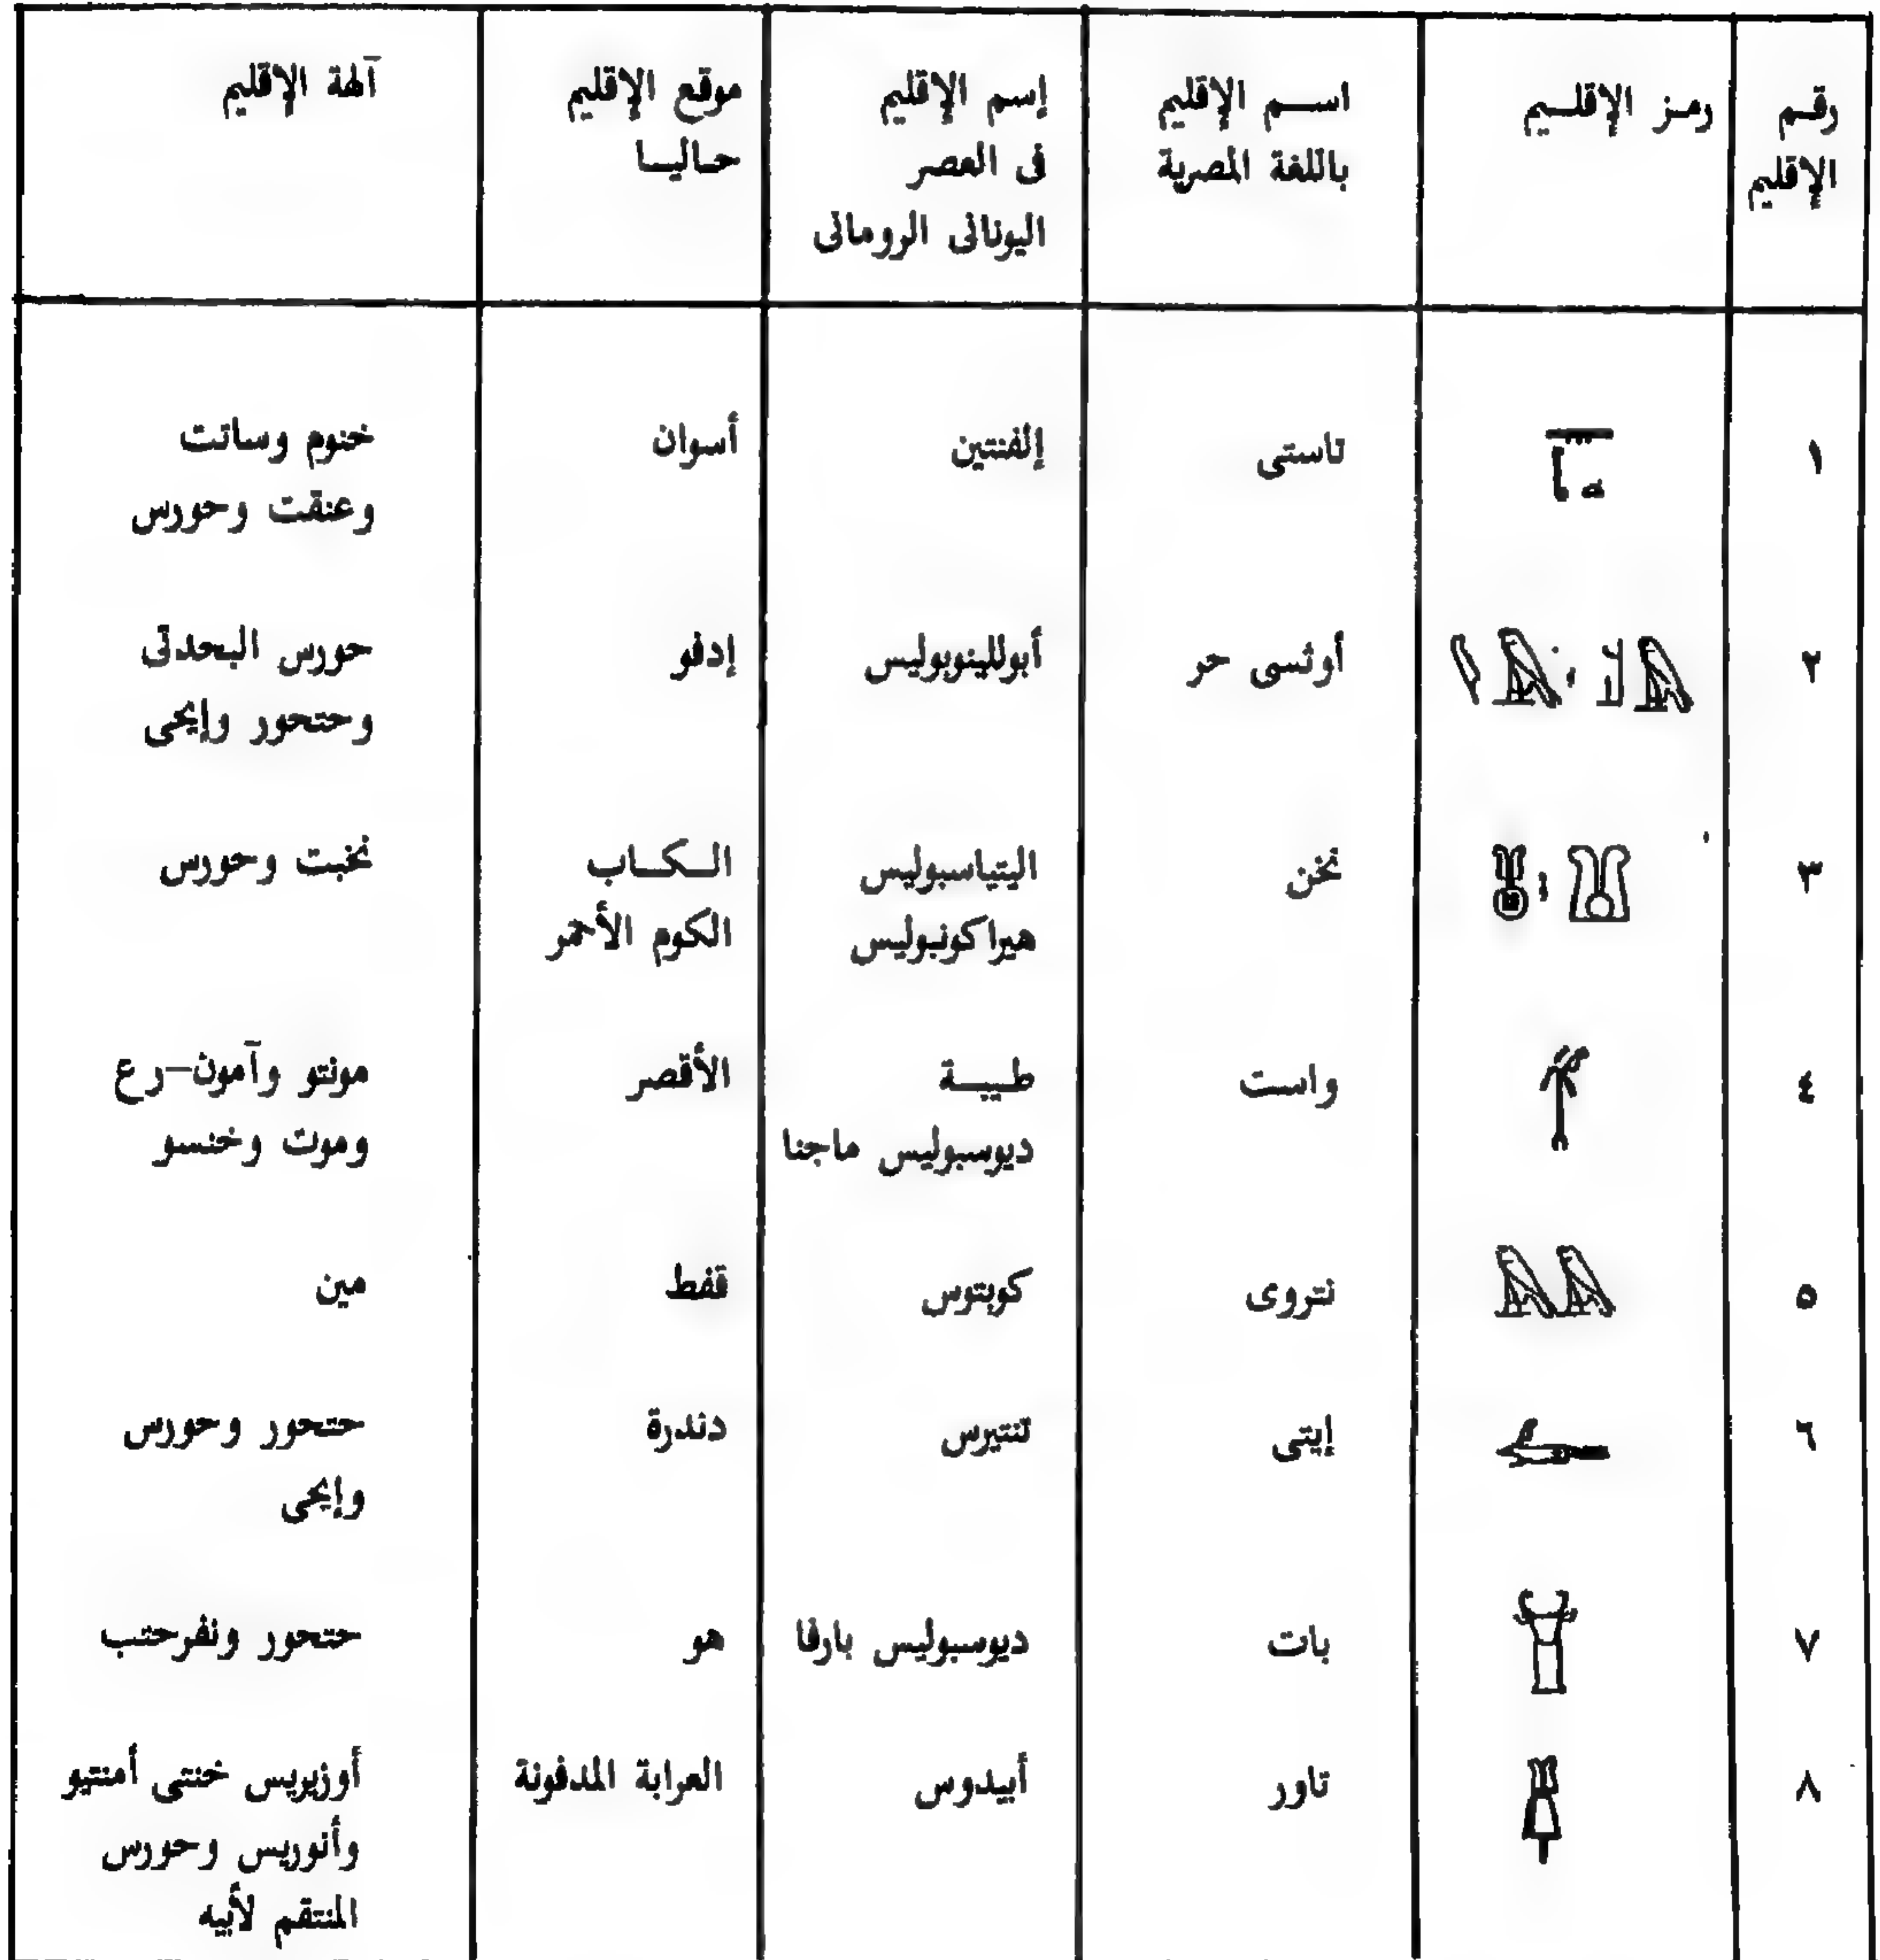 رقم الإقليم
رمز الإقليم
اسم الإقليم باللغة المصرية
إسم الإقليم فى العصر اليونانى الرومانى
موقع الإقليم حاليا
آلهة الإقليم
١
تاستى
إلفنتين
أسوان
خنوم وساتت
وعنقت وحورس
٢
أوثسى حر
أبوللينوبوليس
إدفو
حورس البحدتى
وحتحور وإيحى
٣
نخن
اليتياسبوليس
هيراكونبوليس
الكاب
الكوم الأحمر
نخبت وحورس
٤
واست
طيبة
ديوسبوليس ماجنا
الأقصر
مونتو وآمون–رع
وموت وخنسو
٥
نتروى
كوبتوس
قفط
مين
٦
إيتى
تنتيرس
دندرة
حتحور وحورس
وإيحى
٧
بات
ديوسبوليس بارفا
هو
حتحور ونفرحتب
٨
تاور
أبيدوس
العرابة المدفونة
أوزيريس خنتى أمنتيو
وأنوريس وحورس
المنتقم لأبيه